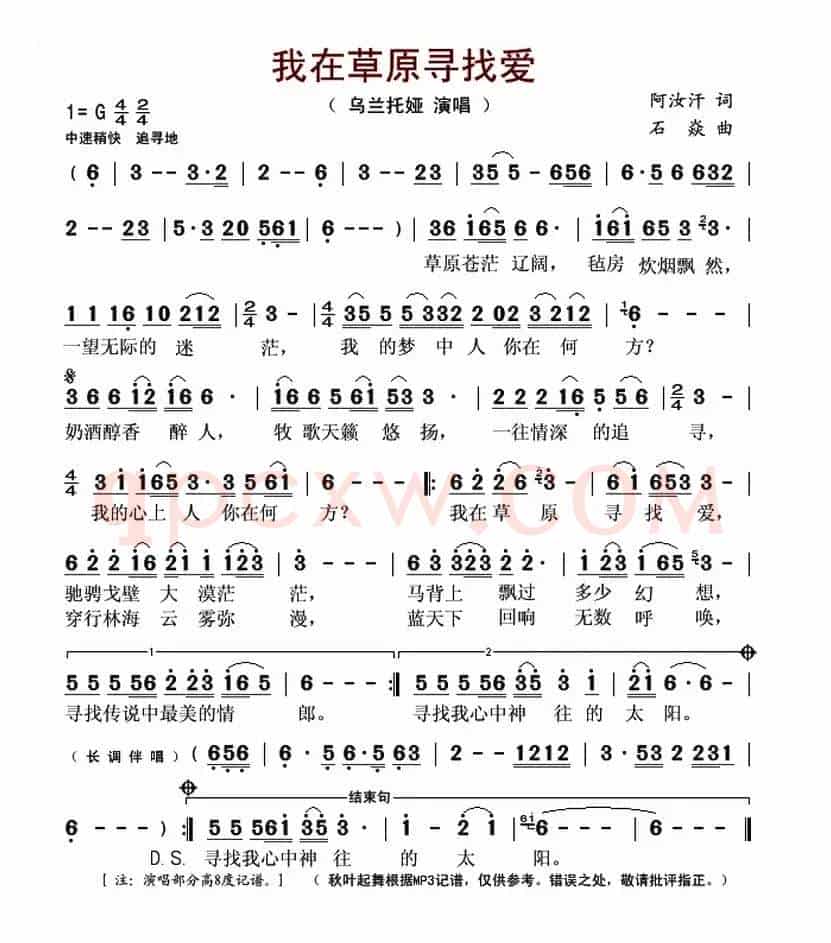 我在草原寻找爱
( 乌兰托娅 演唱 )
1= G 4/4 2/4
阿汝汗 词
中速稍快 追寻地
石 焱 曲
( 6 | 3 - - 3·2 | 2 - - 6 | 3 - - 23 | 35 5 - 656 | 6·5 6 632 |
2 - - 23 | 5·3 20 561 | 6 - - - ) | 36 165 6 6· | 161 653 2/4 3· |
草原苍茫 辽阔, 毡房 炊烟飘 然,
1 1 16 10 212 | 2/4 3 - | 4/4 35 5 5332 20 02 3 212 | 6 - - - |
一望无际的 迷 茫, 我 的梦 中 人 你在 何 方?
3 6 6 12 16 6 · | 16 6 5 61 53 3 · | 2 2 2 16 5 5 6 | 2/4 3 - |
奶酒醇香 醉 人, 牧 歌天籁 悠 扬, 一往情深 的追 寻,
4/4 31 165 3·3 5 061 | 6 - - - |: 6 2 2 6 3· | 6 1 653 3 - |
我的心上 人 你在何 方? 我在草 原 寻 找 爱,
6 2 2 16 21 1 123 | 3 - - - | 6 2 2 3 2 2· | 1 23 1 65 3 - |
驰骋戈壁 大 漠茫 茫, 马背上 飘过 多少 幻 想,
穿行林海 云 雾弥 漫, 蓝天下 回响 无数 呼 唤,
1 2
5 5 5 56 2 23 16 5 | 6 - - - :| 5 5 5 561 35 3 1 | 21 6·6 - |
寻找传说中最美的情 郎。 寻找我心中神 往 的 太 阳。
( 长 调 伴 唱 ) (656 | 6· 5 6·5 63 | 2 - - 1212 | 3· 53 2 231 |
结束句
6 - - - ) :| 5 5 5 561 35 3 · | 1 - 2 1 | 6i 6 - - - | 6 - - - ||
D. S. 寻找我心中神 往 的 太 阳。
[ 注: 演唱部分高8度记谱。 ] ( 秋叶起舞根据MP3记谱, 仅供参考。错误之处, 敬请批评指正。 )
qpcxw.com